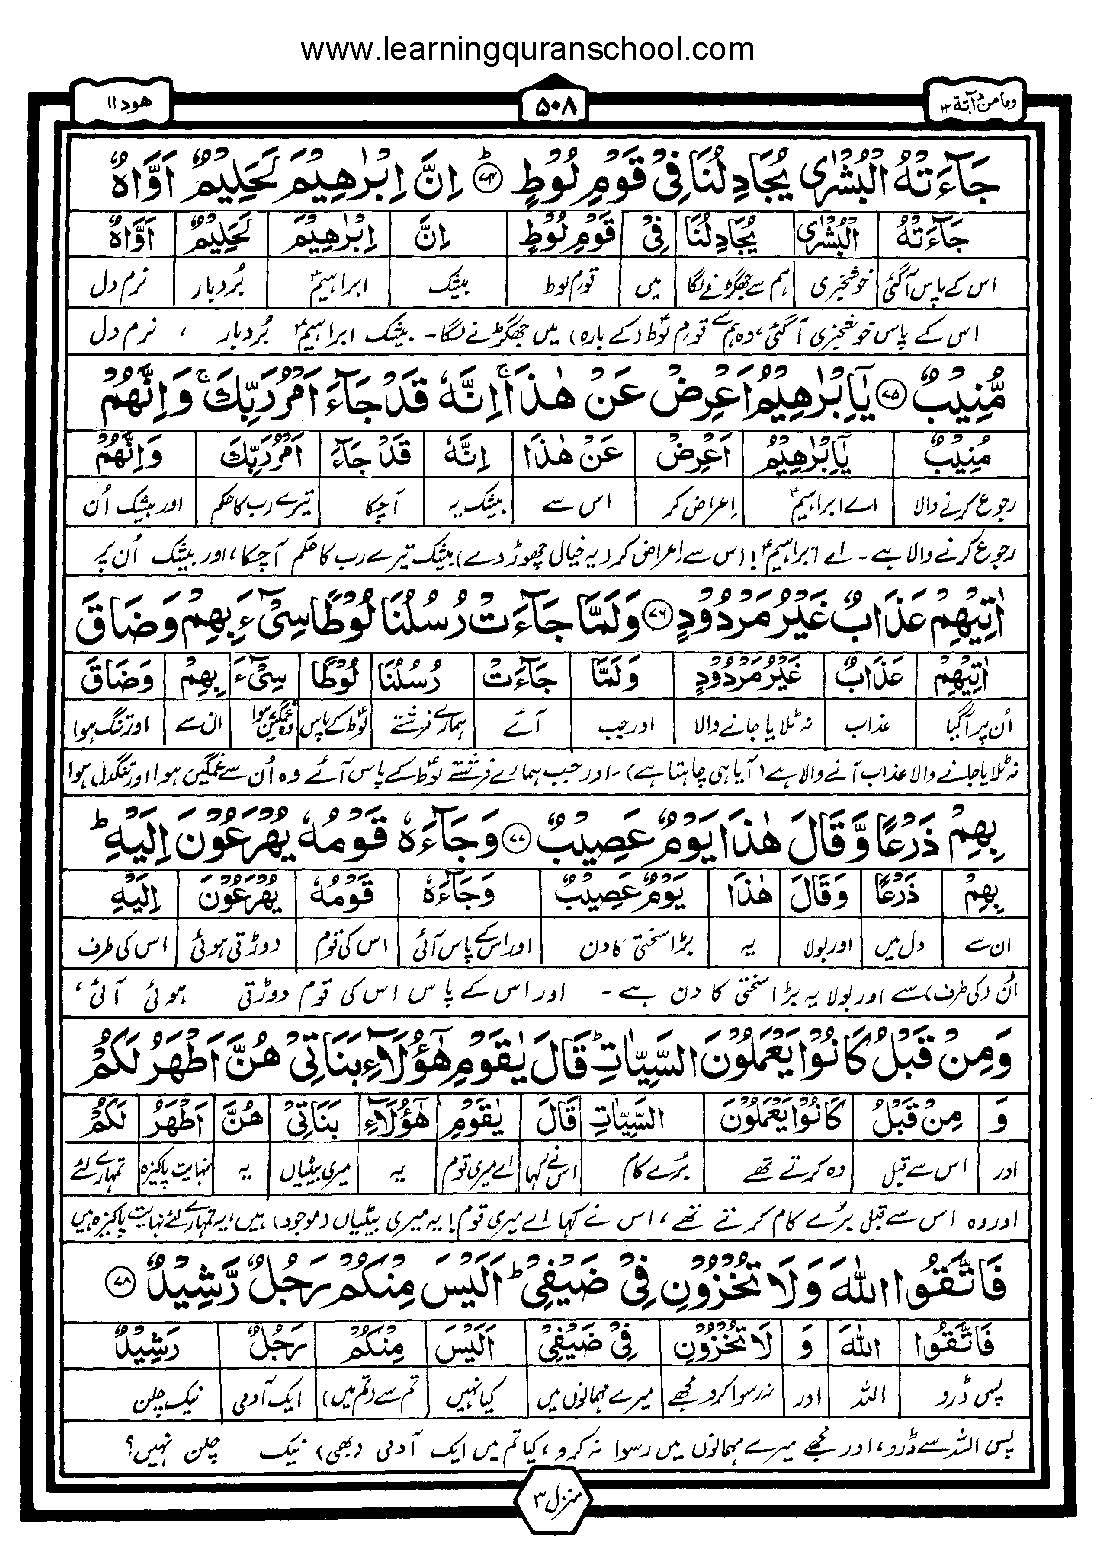 www.learningquranschool.com
وما من دآبة ١٢
۵۰۸
ھود ۱۱
جَآءَتْهُ الْبُشْرٰى يُجَادِلُنَا فِىْ قَوْمِ لُوْطٍ ﴿۷۴﴾ اِنَّ اِبْرٰهِيْمَ لَحَلِيْمٌ اَوَّاهٌ
جَآءَتْهُ الْبُشْرٰى يُجَادِلُنَا فِىْ قَوْمِ لُوْطٍ اِنَّ اِبْرٰهِيْمَ لَحَلِيْمٌ اَوَّاهٌ
اس کے پاس آگئی خوشخبری ہم سے جھگڑنے لگا میں قوم لوط بیشک ابراہیمؑ بُردبار نرم دل
اس کے پاس خوشخبری آگئی، وہ ہم سے قوم لوطؑ (کے بارہ) میں جھگڑنے لگا۔ بیشک ابراہیمؑ بُردبار ، نرم دل
مُّنِيْبٌ ﴿۷۵﴾ يٰٓاِبْرٰهِيْمُ اَعْرِضْ عَنْ هٰذَا ۚ اِنَّهٗ قَدْ جَآءَ اَمْرُ رَبِّكَ ۚ وَاِنَّهُمْ
مُنِيْبٌ يٰٓاِبْرٰهِيْمُ اَعْرِضْ عَنْ هٰذَا اِنَّهٗ قَدْ جَآءَ اَمْرُ رَبِّكَ وَاِنَّهُمْ
رجوع کرنے والا اے ابراہیمؑ اِعراض کر اس سے بیشک یہ آچکا تیرے رب کا حکم اور بیشک اُن
رجوع کرنے والا ہے۔ اے ابراہیمؑ! اس سے اعراض کر (یہ خیال چھوڑ دے) بیشک تیرے رب کا حکم آچکا، اور بیشک اُن پر
اٰتِيْهِمْ عَذَابٌ غَيْرُ مَرْدُوْدٍ ﴿۷۶﴾ وَلَمَّا جَآءَتْ رُسُلُنَا لُوْطًا سِىْٓءَ بِهِمْ وَضَاقَ
اٰتِيْهِمْ عَذَابٌ غَيْرُ مَرْدُوْدٍ وَلَمَّا جَآءَتْ رُسُلُنَا لُوْطًا سِىْٓءَ بِهِمْ وَضَاقَ
اُن پر آگیا عذاب نہ ٹلایا جانے والا اور جب آئے ہمارے فرشتے لوطؑ کے پاس وہ غمگین ہوا ان سے اور تنگ ہوا
نہ ٹلایا جانے والا عذاب آنے والا ہے (آیا ہی چاہتا ہے)۔ اور جب ہمارے فرشتے لوطؑ کے پاس آئے وہ اُن سے غمگین ہوا اور تنگدل ہوا
بِهِمْ ذَرْعًا وَّقَالَ هٰذَا يَوْمٌ عَصِيْبٌ ﴿۷۷﴾ وَجَآءَهٗ قَوْمُهٗ يُهْرَعُوْنَ اِلَيْهِ ؕ
بِهِمْ ذَرْعًا وَقَالَ هٰذَا يَوْمٌ عَصِيْبٌ وَجَآءَهٗ قَوْمُهٗ يُهْرَعُوْنَ اِلَيْهِ
ان سے دل میں اور بولا یہ بڑا سختی کا دن اور اسکے پاس آئی اس کی قوم دوڑتی ہوئی اس کی طرف
اُن (کی طرف) سے اور بولا یہ بڑا سختی کا دن ہے۔ اور اس کے پاس اس کی قوم دوڑتی ہوئی آئی،
وَمِنْ قَبْلُ كَانُوْا يَعْمَلُوْنَ السَّيِّاٰتِ ؕ قَالَ يٰقَوْمِ هٰٓؤُلَآءِ بَنَاتِىْ هُنَّ اَطْهَرُ لَكُمْ
وَ مِنْ قَبْلُ كَانُوْا يَعْمَلُوْنَ السَّيِّاٰتِ قَالَ يٰقَوْمِ هٰٓؤُلَآءِ بَنَاتِىْ هُنَّ اَطْهَرُ لَكُمْ
اور اس سے قبل وہ کرتے تھے بُرے کام اس نے کہا اے میری قوم یہ میری بیٹیاں یہ نہایت پاکیزہ تمہارے لئے
اور وہ اس سے قبل بُرے کام کرتے تھے، اس نے کہا اے میری قوم! یہ میری بیٹیاں (موجود) ہیں، یہ تمہارے لئے نہایت پاکیزہ ہیں
فَاتَّقُوا اللّٰهَ وَلَا تُخْزُوْنِ فِىْ ضَيْفِىْ ؕ اَلَيْسَ مِنْكُمْ رَجُلٌ رَّشِيْدٌ ﴿۷۸﴾
فَاتَّقُوا اللّٰهَ وَ لَا تُخْزُوْنِ فِىْ ضَيْفِىْ اَلَيْسَ مِنْكُمْ رَجُلٌ رَشِيْدٌ
پس ڈرو اللہ اور نہ رسوا کرو مجھے میرے مہمانوں میں کیا نہیں تم سے (تم میں) ایک آدمی نیک چلن
پس اللہ سے ڈرو، اور مجھے میرے مہمانوں میں رسوا نہ کرو، کیا تم میں ایک آدمی (بھی) نیک چلن نہیں؟
منزل ۳